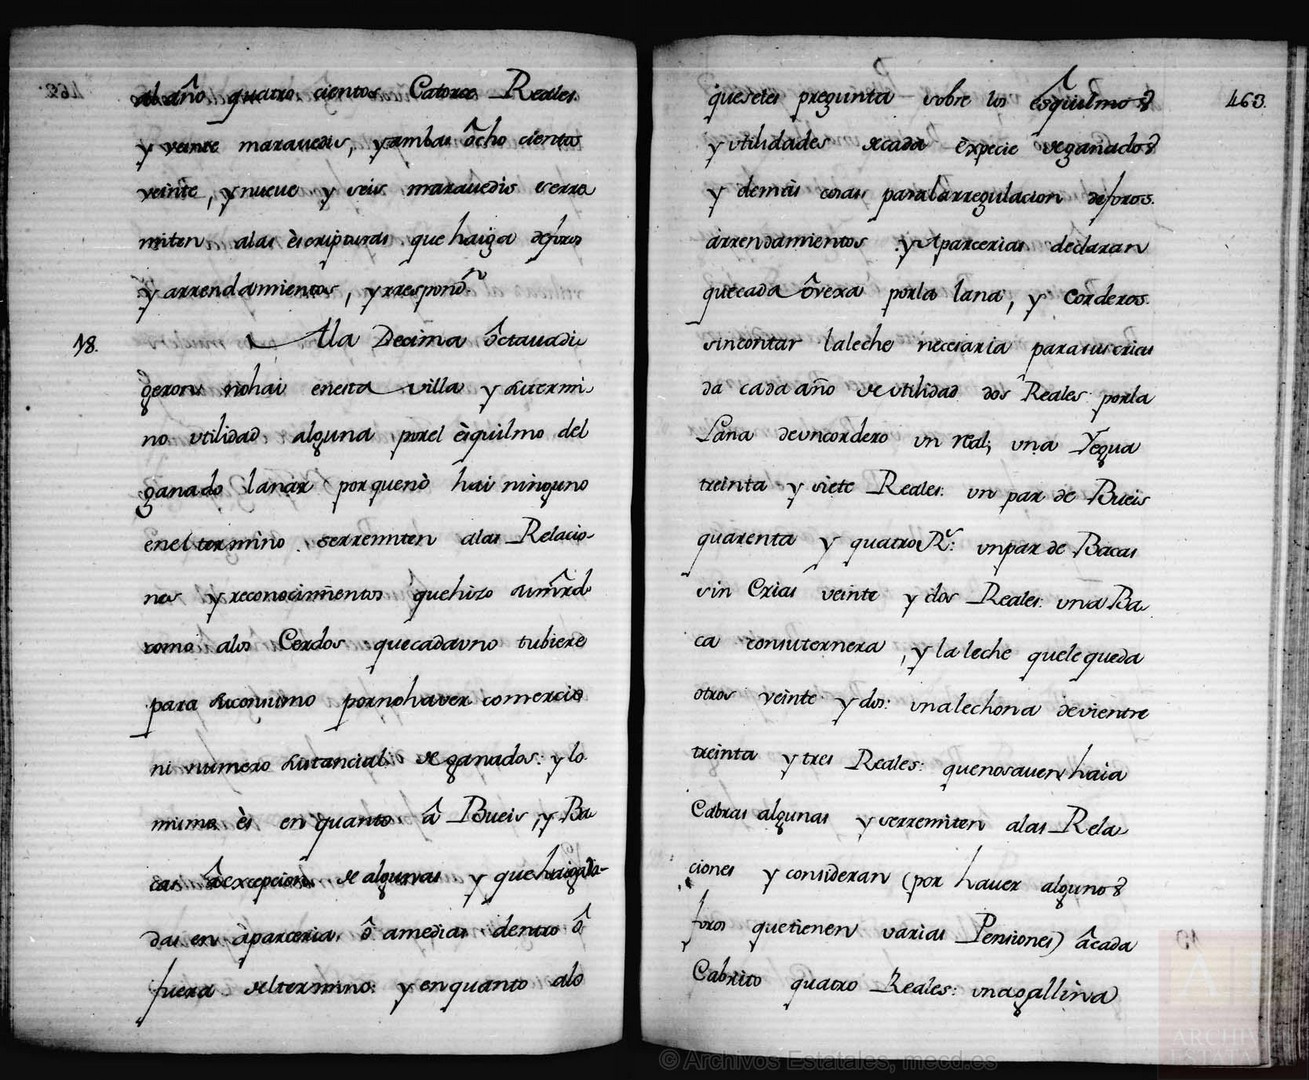 al año quatro cientos Catorce Reales
y veinte maravedis, y ambas ôcho cientos
veinte, y nueve y seis maravedis serre
miten alas êscripturas que haiga deforos
y arrendamientos, yrrespond.ⁿ
18. Ala Decima ôctava di
geron nohai enesta villa y sutermi
no vtilidad alguna porel èsquilmo del
ganado lanar porquenò hai ninguno
enel termino. serremiten alas Relacio-
nes y reconocimientos quehizo
como alos Cerdos quecadauno tubiere
para suconsumo pornohaver comercio
ni numero sustancial de ganados: y lo
mismo ès en quanto â Bueis, y Ba
cas âexcepcion de algunas y que haiga da-
das en àparceria, ô amedias dentro ô
fuera deltermino: y enquanto alo
463.
queseles pregunta sobre los esquilmos
y vtilidades decada expecie deganados
y demàs cosas paralarregulacion deforos
arrendamientos y Aparcerias declaran
quecada ôvexa porla lana, y Corderos
sincontar laleche necesaria parasuscrias
da cada año de vtilidad dos Reales porla
Lana deuncordero un real; una Yegua
treinta y siete Reales: un par de Bueis
quarenta y quatro R.ˢ: unpar de Bacas
sin Crias veinte y dos Reales: una Ba
ca consuternera, y la leche quele queda
otros veinte y dos: unalechona devientre
treinta y tres Reales: quenosaven haia
Cabras algunas y serremiten alas Rela
ciones y consideran (por haver algunos
foros que tienen varias Pensiones) âcada
Cabrito quatro Reales: unagallina
© Archivos Estatales, mecd.es